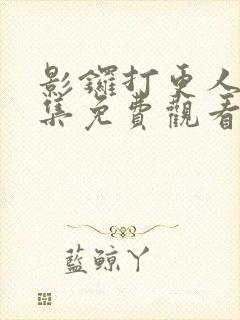 影鑼打更人
集免費觀看
藍鯨丫